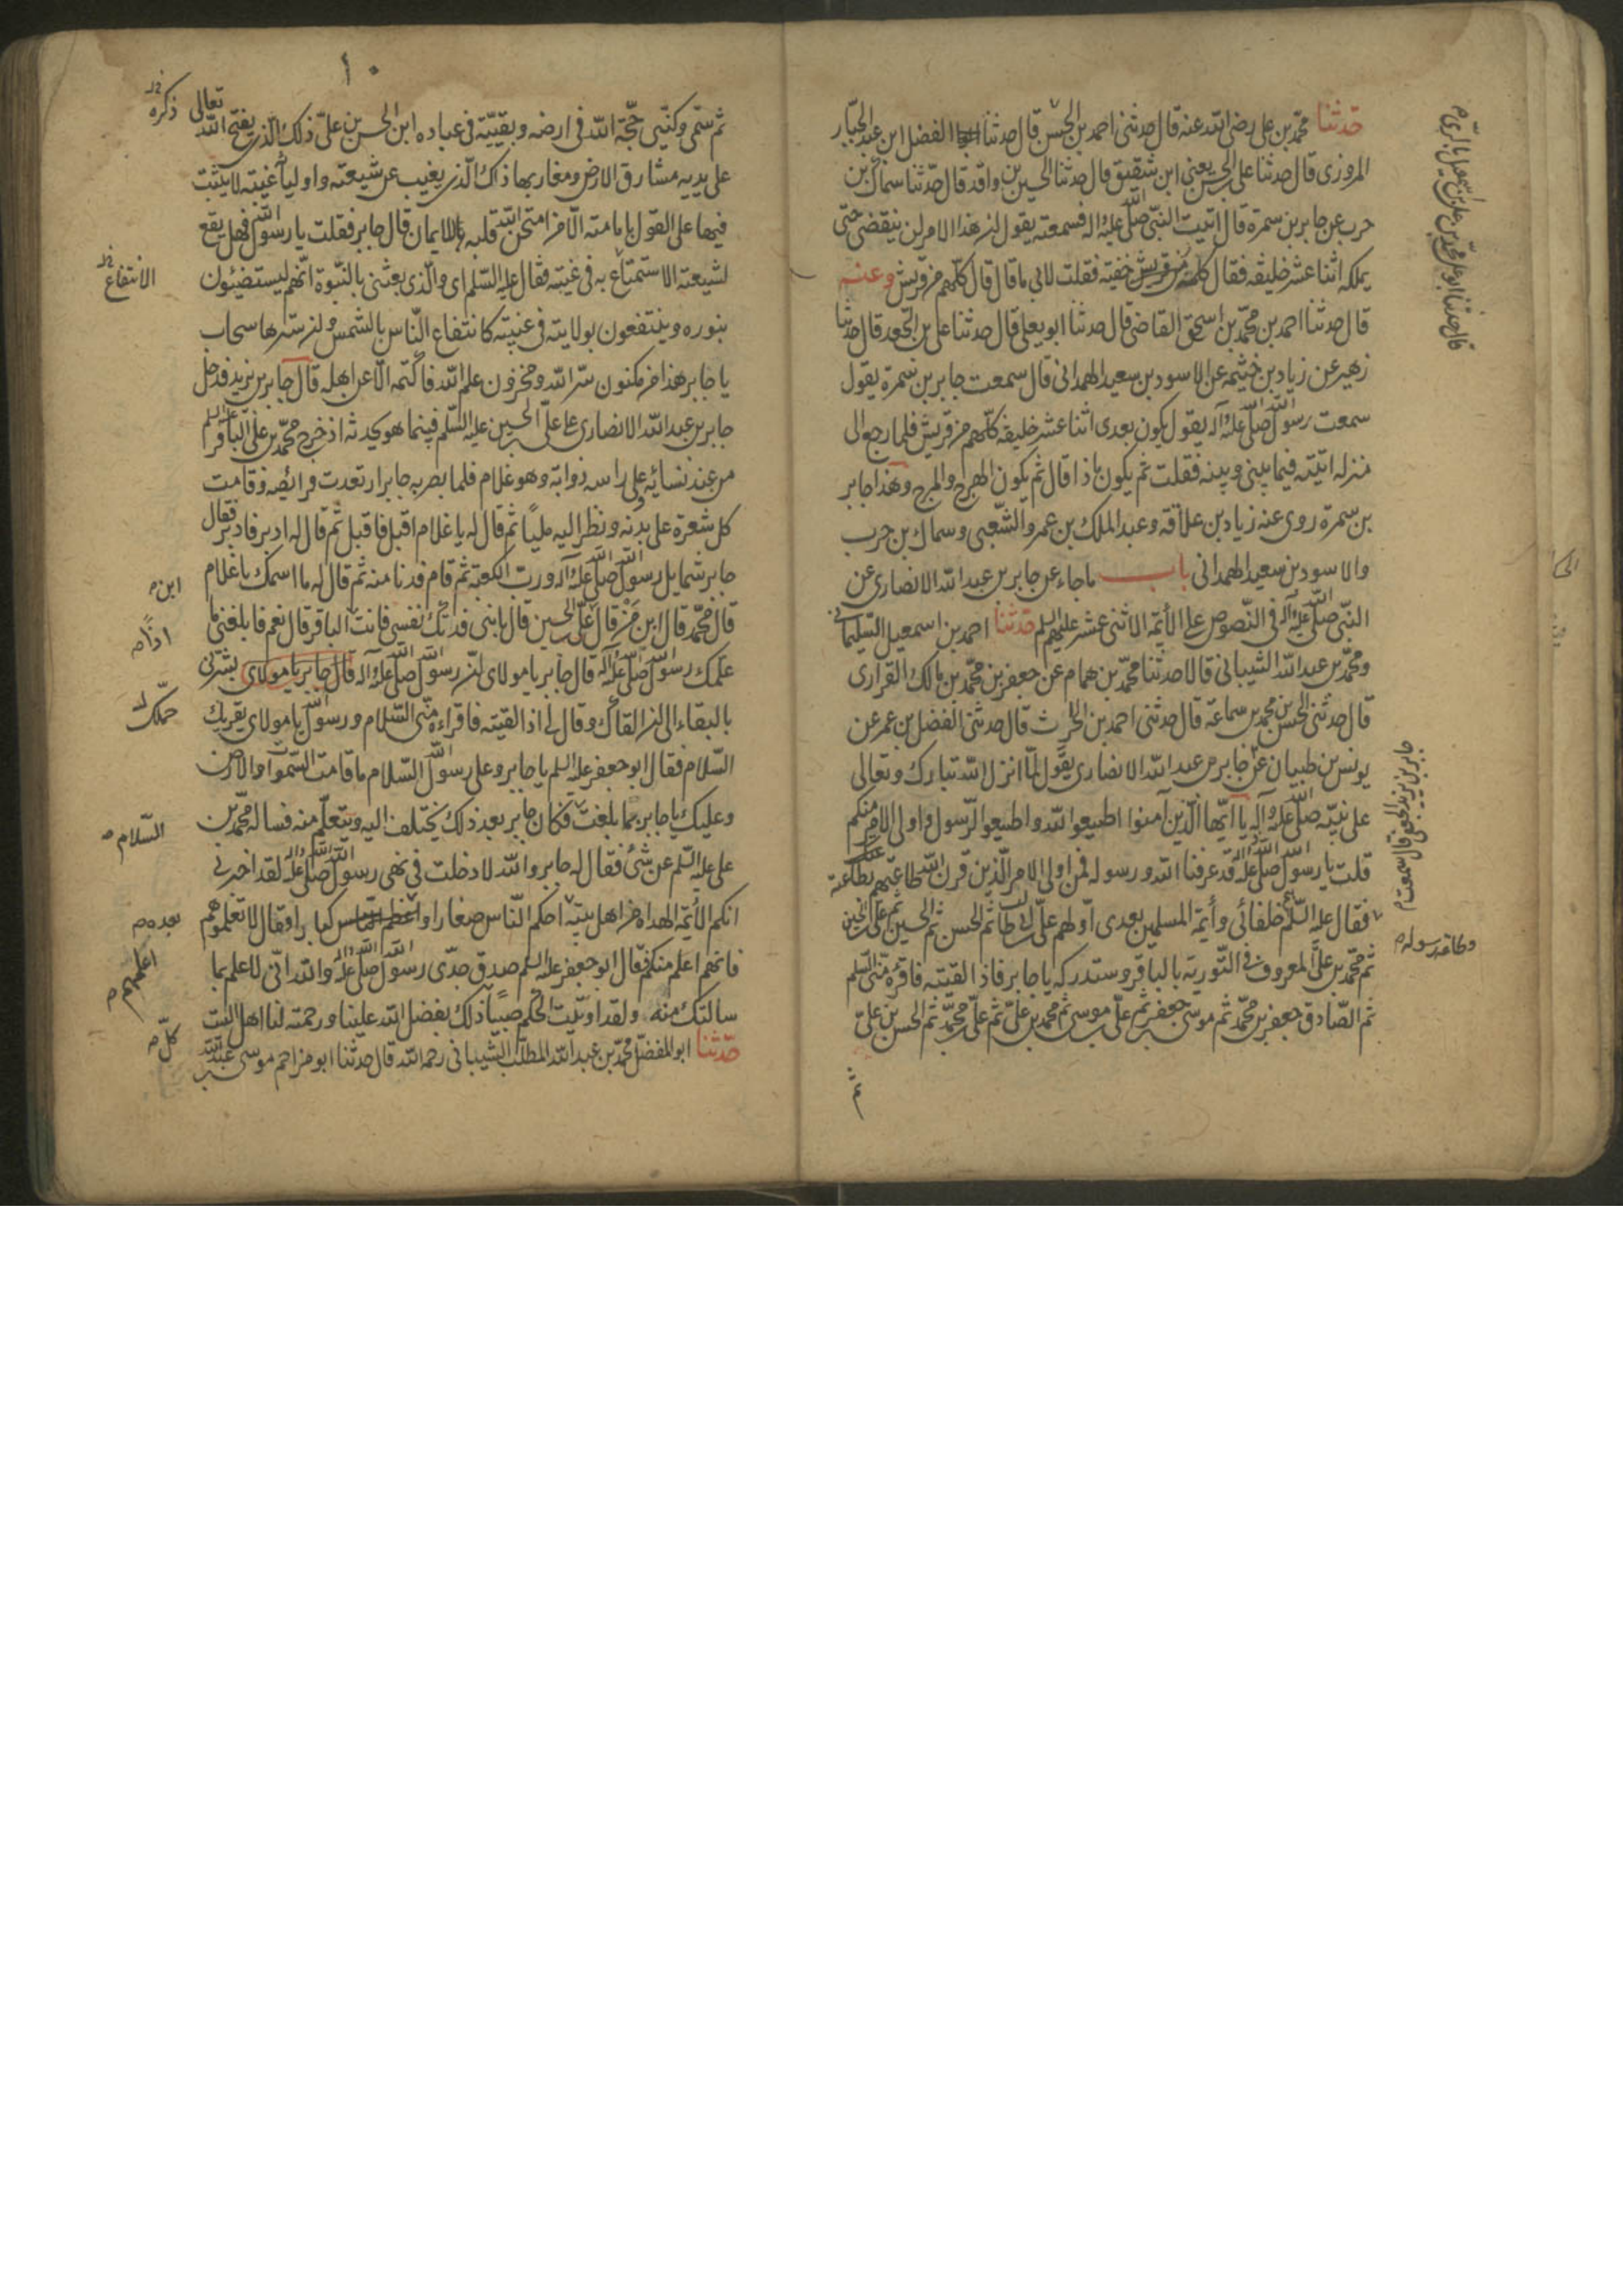 حدثنا محمّد بن علی رضی الله عنه قال حدثنی احمد بن الحسن قال حدثنا الفضل ابن عبد الجبّار
المروزی قال حدثنا علی بن الحسن یعنی ابن شقیق قال حدثنا الحسین بن واقد قال حدّثنا سماک بن
حرب عن جابر بن سمرة قال اتیت النبّی صلّی الله علیه و اله فسمعته یقول ان هذا الامر لن ینقضی حتّی
یملکه اثنا عشر خلیفه فقال کلمة خفیّه فقلت لابی ما قال قال کلّهم من قریش وعنه
قال حدثنا احمد بن محمّد بن اسحق القاضی قال حدثنا ابو یعلی قال حدثنا علی بن الجعد قال حدثنا
زهیر عن زیاد بن خثیمه عن الاسود بن سعید الهمدانی قال سمعت جابر بن سمرة یقول
سمعت رسول الله صلّی الله علیه و آله یقول یکون بعدی اثنا عشر خلیفه کلّهم من قریش فلما رجع الی
منزله اتیته فیما بینی و بینه فقلت ثم یکون ماذا قال ثم یکون الهرج والمرج وهذا جابر
بن سمرة روی عنه زیاد بن علاقه وعبد الملک بن عمر والشّعبی وسماک بن حرب
والاسود بن سعید الهمدانی باب ما جاء عن جابر بن عبد الله الانصاری عن
النبّی صلّی الله علیه و آله فی النّصوص علی الأئمّه الاثنی عشر علیهم السلم حدثنا احمد بن اسمعیل السّلیمانی
ومحمّد بن عبد الله الشیبانی قالا حدثنا محمّد بن همام عن جعفر بن محمّد بن مالک الفزاری
قال حدثنی الحسن بن محمد بن سماعة قال حدثنی احمد بن الحرث قال حدثنی الفضل بن عمر عن
یونس بن ظبیان عن جابر بن عبد الله الانصاری یقول لمّا انزل الله تبارک وتعالی
علی نبیّه صلّی الله علیه و آله یا ایّها الّذین آمنوا اطیعوا الله واطیعوا الرّسول واولی الامر منکم
قلت یا رسول الله صلّی الله علیه و اله قد عرفنا الله ورسوله فمن اولی الامر الّذین قرن الله طاعتهم بطاعته
فقال علیه السّلم خلفائی وأئمّة المسلمین بعدی اوّلهم علّی بن ابی طالب ثم الحسن ثم الحسین ثم علی بن الحسین
ثم محمّد بن علیّ المعروف فی التّوریة بالباقر وستدرکه یا جابر فاذا لقیته فاقرءه منّی السّلم
ثم الصّادق جعفر بن محمّد ثم موسی بن جعفر ثم علّی بن موسی ثم محمد بن علیّ ثم علیّ بن محمّد ثم الحسن بن علیّ
ثم
قال حدثنا ابو علی محمّد بن علی بن اسمعیل
جابر بن یزید الجعفی قال سمعت م
وطاعة رسوله م
۱۰
ثم سمّی وکنّیی حجّة الله فی ارضه وبقیّته فی عباده ابن الحسن بن علیّ ذلک الّذی یفتح الله تعالی
ذکره
علی یدیه مشارق الارض ومغاربها ذاک الّذی یغیب عن شیعته واولیائه غیبته لا یثبت
فیها علی القول بامامته الّا من امتحن الله قلبه بالایمان قال جابر فقلت یا رسول الله فهل یقع
لشیعته الاستمتاع به فی غیبته فقال علیه السّلم ای والّذی بعثنی بالنّبوة انّهم لیستضیئون
الانتفاع
بنوره وینتفعون بولایته فی غیبته کانتفاع النّاس بالشمس وان سترها سحاب
یا جابر هذا من مکنون سرّ الله ومخزون علم الله فاکتمه الّا عن اهله قال جابر بن یزید فدخل
جابر بن عبد الله الانصاری علی علّی بن الحسین علیه السّلم فبینما هو یحدثه اذ خرج محمّد بن علی الباقر علیه السلم
من عند نسائه وعلی راسه ذوابة وهو غلام فلما بصر به جابر ارتعدت فرائصه وقامت
کل شعرة علی بدنه ونظر الیه ملیّا ثم قال له یا غلام اقبل فاقبل ثم قال له ادبر فادبر فقال
جابر شمایل رسول الله صلّی الله علیه و آله ورب الکعبة ثم قام فدنا منه ثم قال له ما اسمک یا غلام
قال محمّد قال ابن من قال علّی بن الحسین قال یا بنی فدتک نفسی فانت الباقر قال نعم فابلغنی ما
ابن م
اذًا م
حمّلک رسول الله صلّی الله علیه و آله قال جابر یا مولای ان رسول الله صلّی الله علیه و آله قال جابر یا مولای بشّرنی
بالبقاء الی ان القاک وقال لی اذا لقیته فاقراءه منّی السّلام ورسول الله یا مولای یقرئک
حمّلک
السّلام فقال ابو جعفر علیه السلم یا جابر وعلی رسول الله السّلام ما قامت السّموات والارض
وعلیک یا جابر بما بلغت فکان جابر بعد ذلک یختلف الیه ویتعلّم منه فساله محمّد بن
السّلام م
علی علیه السّلم عن شئ فقال له جابر والله لا دخلت فی نهی رسول الله صلّی الله علیه و اله لقد اخبرنی
انکم الأئمّة الهداة من اهل بیته احکم النّاس صغارا و کبارا وقال لا تعلموهم
بعده م
فانّهم اعلم منکم فقال ابو جعفر علیه السلم صدق جدّی رسول الله صلّی الله علیه و اله والله انّی لاعلم بما
اعلمهم م
سالتک منه ولقد اوتیت الحکم صبیّا ذلک بفضل الله علینا ورحمته لنا اهل البیت
کلّ م
حدّثنا ابو المفضّل محمّد بن عبد الله المطّلب الشیبانی رحمه الله قال حدثنا ابو مزاحم موسی بن عبد الله